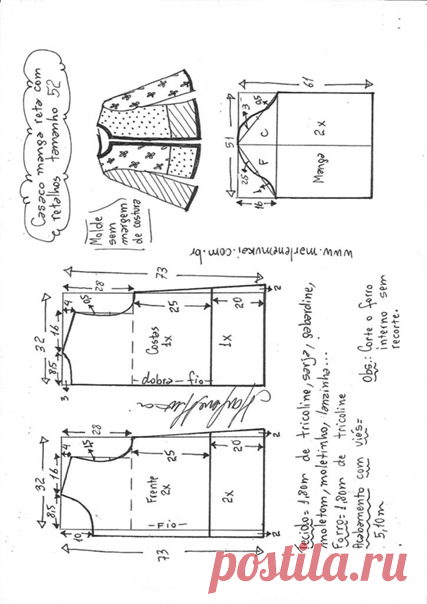 Casaco manga reta com
retalhos tamanho 52
Molde
sem
margem
de costura
51
61
3
0,5
25
1
16
F
C
Manga
2x
www.marlenemukai.com.br
73
32
8,5
16
4
28
0,5
3
25
20
2
Costas
1x
1x
fio
dobra
32
8,5
16
4
28
1,5
10
25
20
2
Frente
2x
2x
Fio
73
Tecido= 1,80m de tricoline, sarja, gabardine,
moletom, moletinho, lanzinha...
Forro= 1,80m de tricoline
Acabamento com viés=
5,10m
Obs.: Corte o forro
interno sem
recorte.
postila.ru